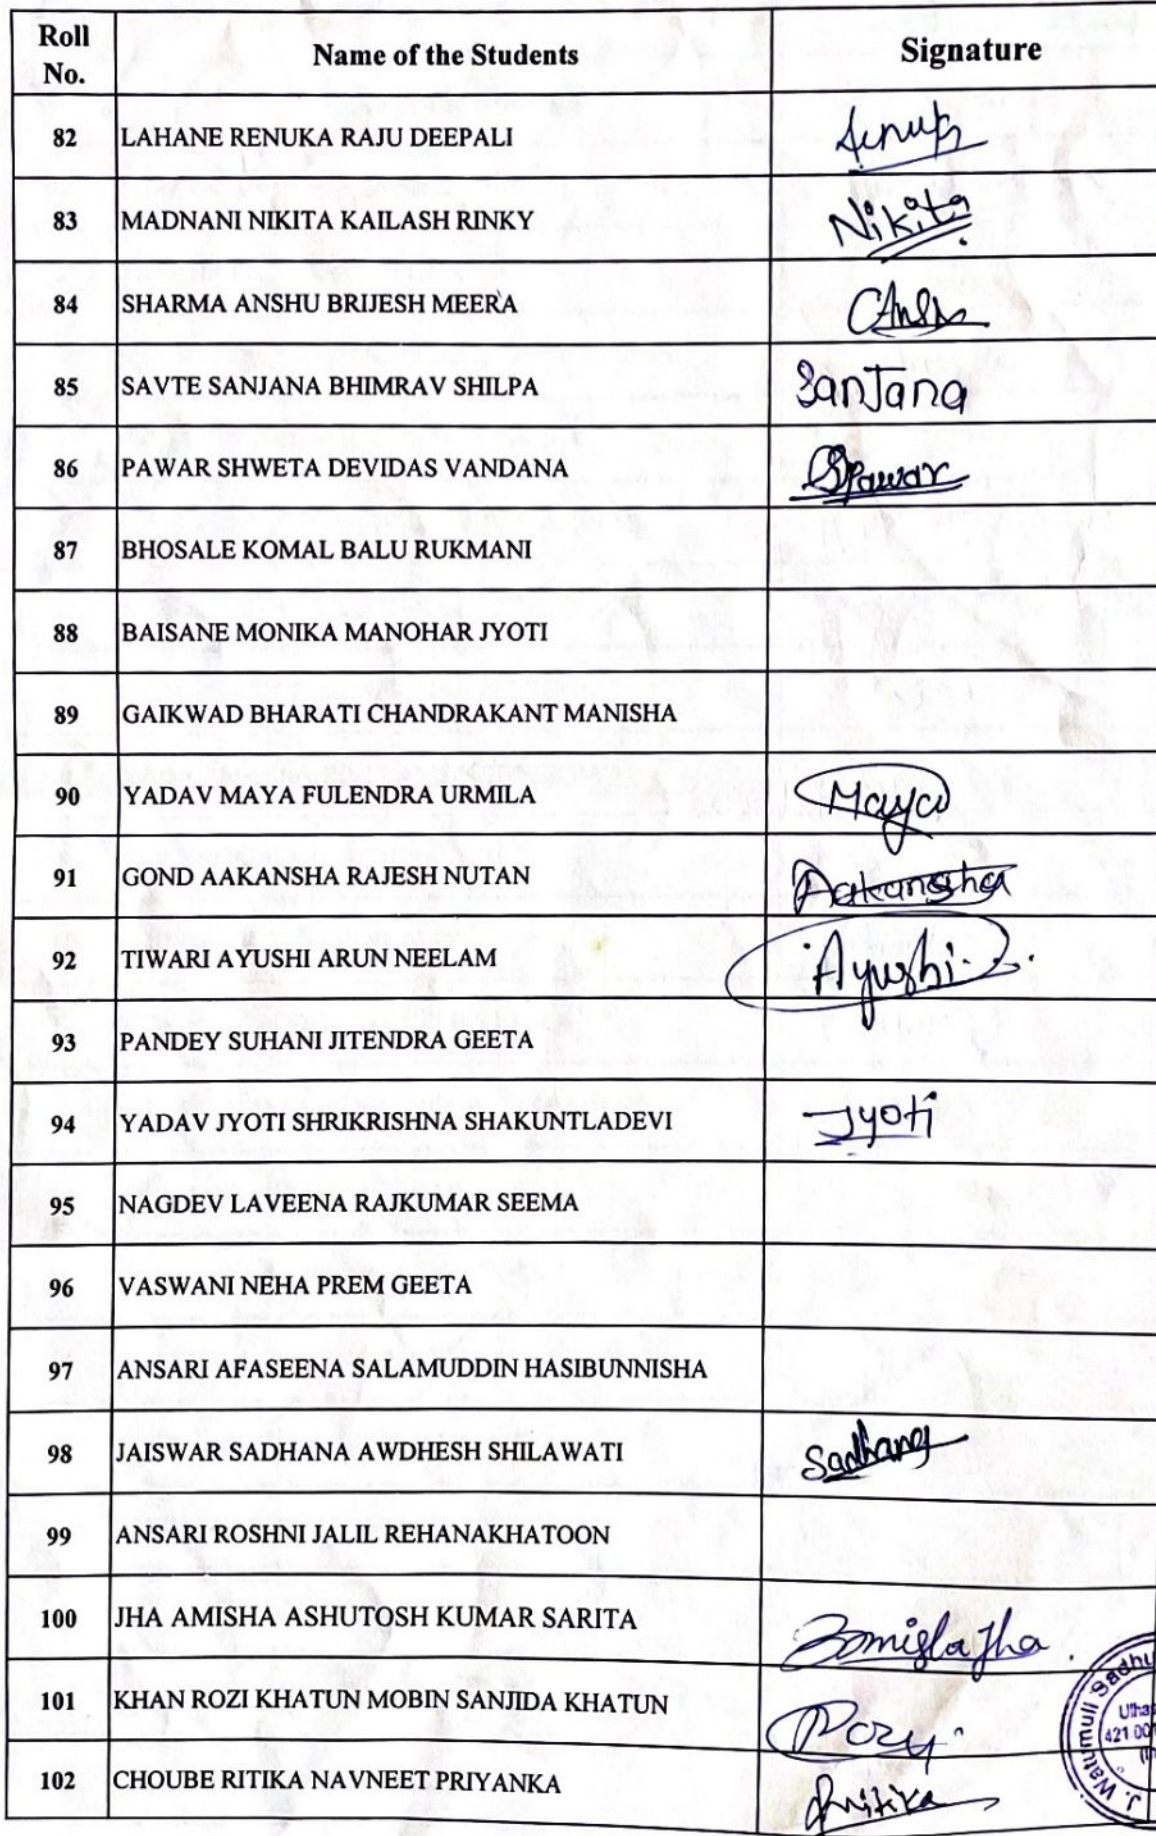 Roll No. Name of the Students Signature
82 LAHANE RENUKA RAJU DEEPALI
83 MADNANI NIKITA KAILASH RINKY Nikita
84 SHARMA ANSHU BRIJESH MEERA
85 SAVTE SANJANA BHIMRAV SHILPA Sanjana
86 PAWAR SHWETA DEVIDAS VANDANA SPawar
87 BHOSALE KOMAL BALU RUKMANI
88 BAISANE MONIKA MANOHAR JYOTI
89 GAIKWAD BHARATI CHANDRAKANT MANISHA
90 YADAV MAYA FULENDRA URMILA Maya
91 GOND AAKANSHA RAJESH NUTAN Aakansha
92 TIWARI AYUSHI ARUN NEELAM Ayushi
93 PANDEY SUHANI JITENDRA GEETA
94 YADAV JYOTI SHRIKRISHNA SHAKUNTLADEVI Jyoti
95 NAGDEV LAVEENA RAJKUMAR SEEMA
96 VASWANI NEHA PREM GEETA
97 ANSARI AFASEENA SALAMUDDIN HASIBUNNISHA
98 JAISWAR SADHANA AWDHESH SHILAWATI Sadhana
99 ANSARI ROSHNI JALIL REHANAKHATOON
100 JHA AMISHA ASHUTOSH KUMAR SARITA
101 KHAN ROZI KHATUN MOBIN SANJIDA KHATUN Rozy
102 CHOUBE RITIKA NAVNEET PRIYANKA Ritika
J. Watumull Sadhu